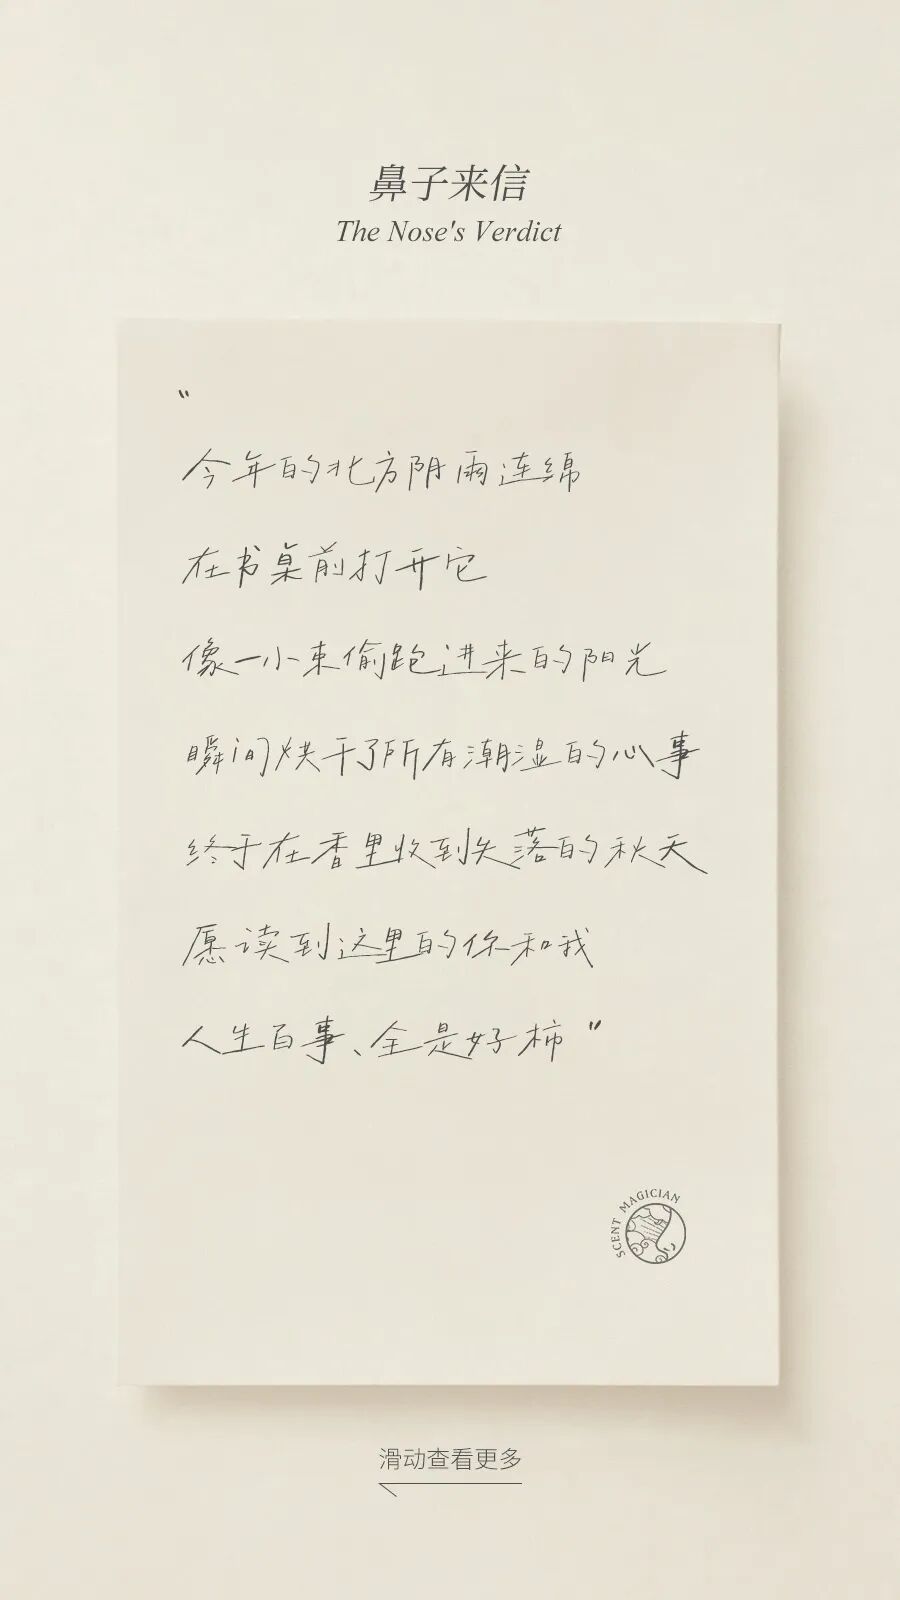 鼻子来信
The Nose's Verdict
“
今年的北方阴雨连绵
在书桌前打开它
像一小束偷跑进来的阳光
瞬间烘干了所有潮湿的心事
终于在香里收到失落的秋天
愿读到这里的你和我
人生百事、全是好柿”
SCENT MAGICIAN
滑动查看更多